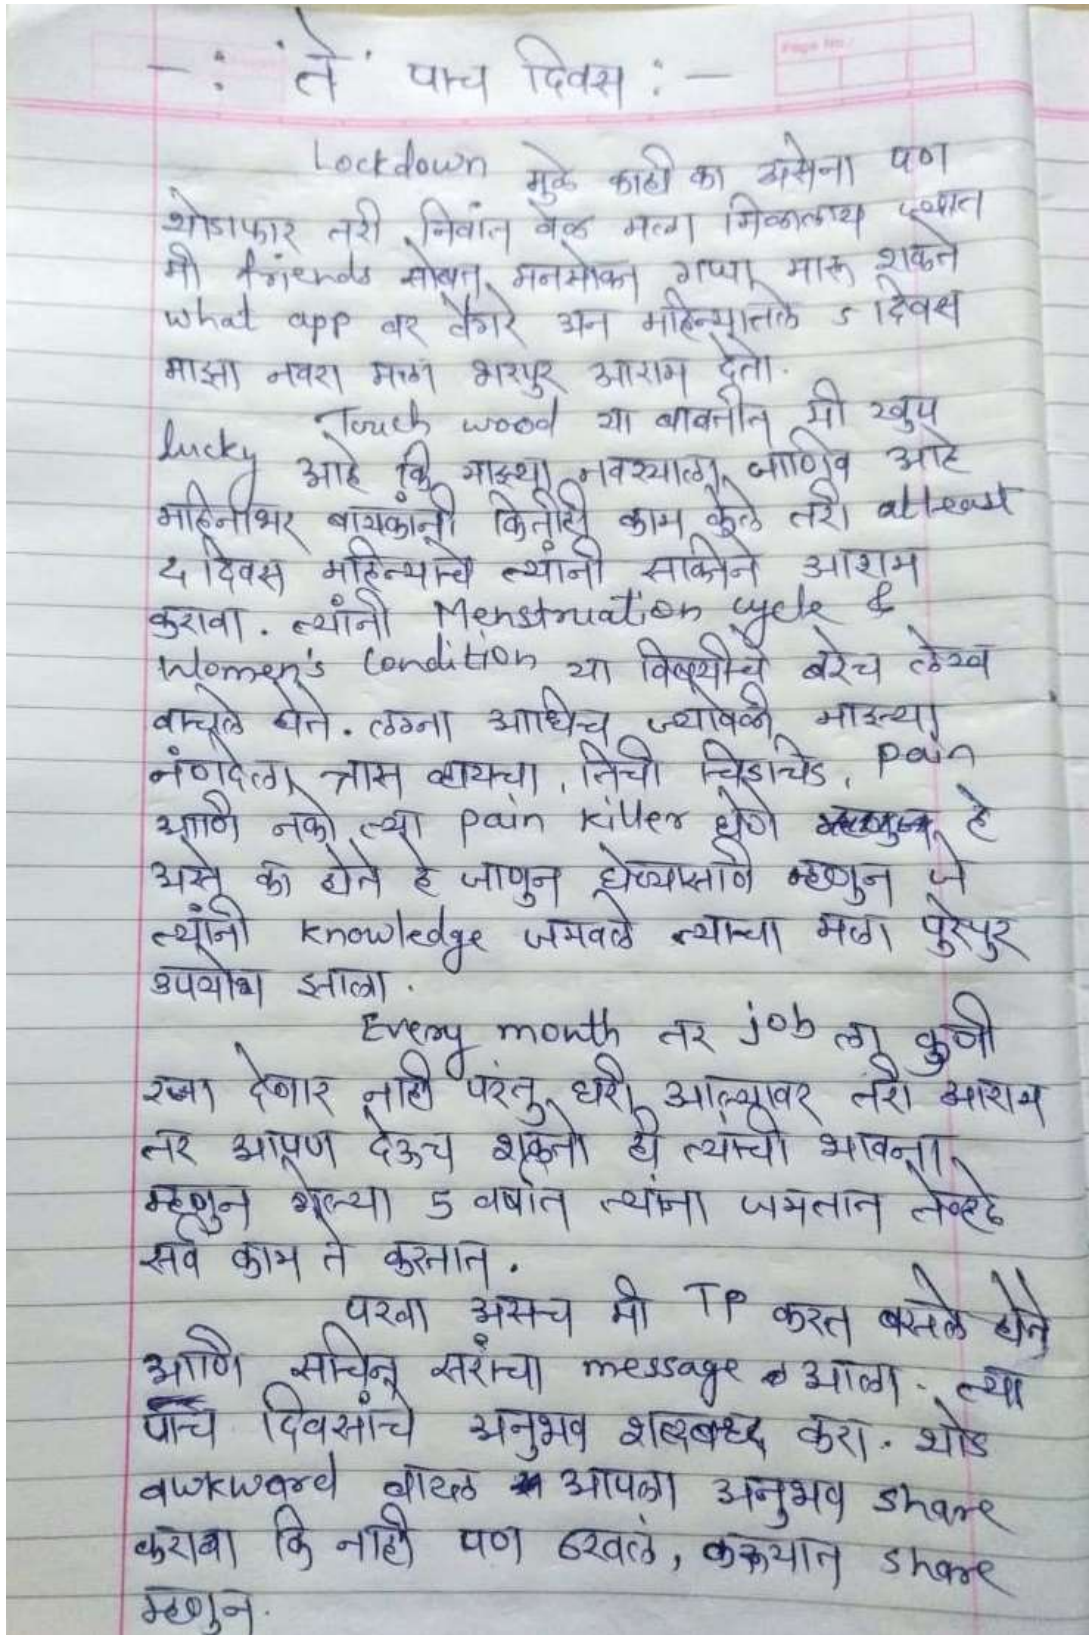 -: 'ते' पाच दिवस :-
Page No.:
Lockdown मुळे काही का असेना पण
थोडाफार तरी निवांत वेळ मला मिळालाय ज्यात
मी friends सोबत मनमोकत गप्पा मारू शकते
what app वर वैगरे अन महिन्यातले 5 दिवस
माझा नवरा मला भरपुर आराम देतो.
Touch wood या बाबतीत मी खुप
lucky आहे कि माझ्या नवऱ्याला जाणिव आहे
महिनाभर बायकांनी कितीही काम केले तरी atleast
5 दिवस महिन्याचे त्यांनी सक्तीने आराम
करावा. त्यांनी Menstruation cycle &
Women's Condition या विषयीचे बरेच लेख
वाचले होते. लग्ना आधिच ज्यावेळी माझ्या
नंणदेला त्रास व्हायचा, तिची चिडचिड, pain
आणि नको त्या pain killer घेणे हे
असे का होते हे जाणुन घेण्यासाठी म्हणुन जे
त्यांनी knowledge जमवले त्याचा मला पुरेपुर
उपयोग झाला.
Every month तर job ला कुणी
रजा देणार नाही परंतु घरी आल्यावर तरी आराम
तर आपण देऊच शकतो ही त्यांची भावना
म्हणुन गेल्या 5 वर्षात त्यांना जमतात तेव्हढे
सर्व काम ते करतात.
परवा असच मी TP करत बसले होते
आणि सचिन सरांचा message आला. त्या
पाच दिवसांचे अनुभव शब्दबध्द करा. थोड
awkward वाटल आपला अनुभव share
करावा कि नाही पण ठरवलं, करूयात share
म्हणुन.